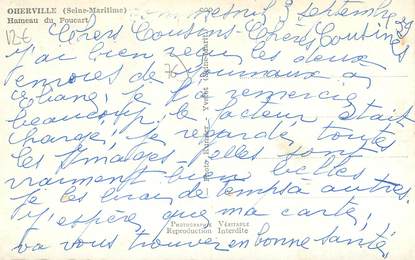 OHERVILLE (Seine-Maritime)
Hameau du Foucart
12€
Mesnil 3 septembre
Chers Cousins - Chers Cousines
j'ai bien reçu les deux
envoies de journaux a
je t'en remercie
beaucoup, le facteur était
chargé, je regarde toutes
les Images, elles sont
vraiment bien belles
je les de temps a autres.
J'espère que ma carte,
va vous trouver en bonne santé,
PHOTOGRAPHIE VÉRITABLE
Reproduction Interdite